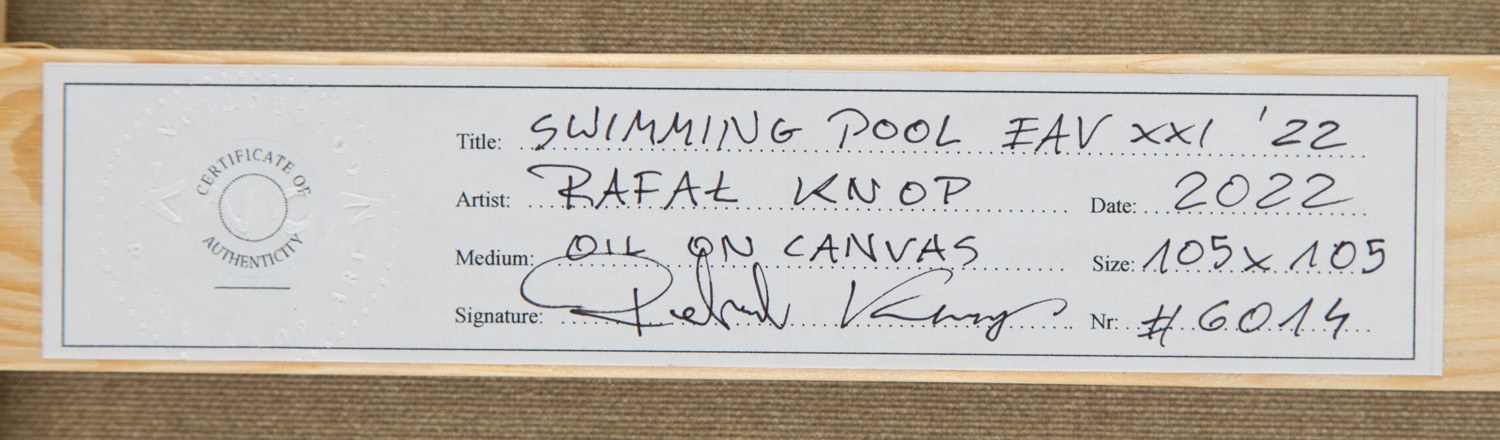 CERTIFICATE OF
AUTHENTICITY
Title: SWIMMING POOL EAV XXI '22
Artist: RAFAŁ KNOP Date: 2022
Medium: OIL ON CANVAS Size: 105x105
Signature: Rafał Knop Nr: #6014